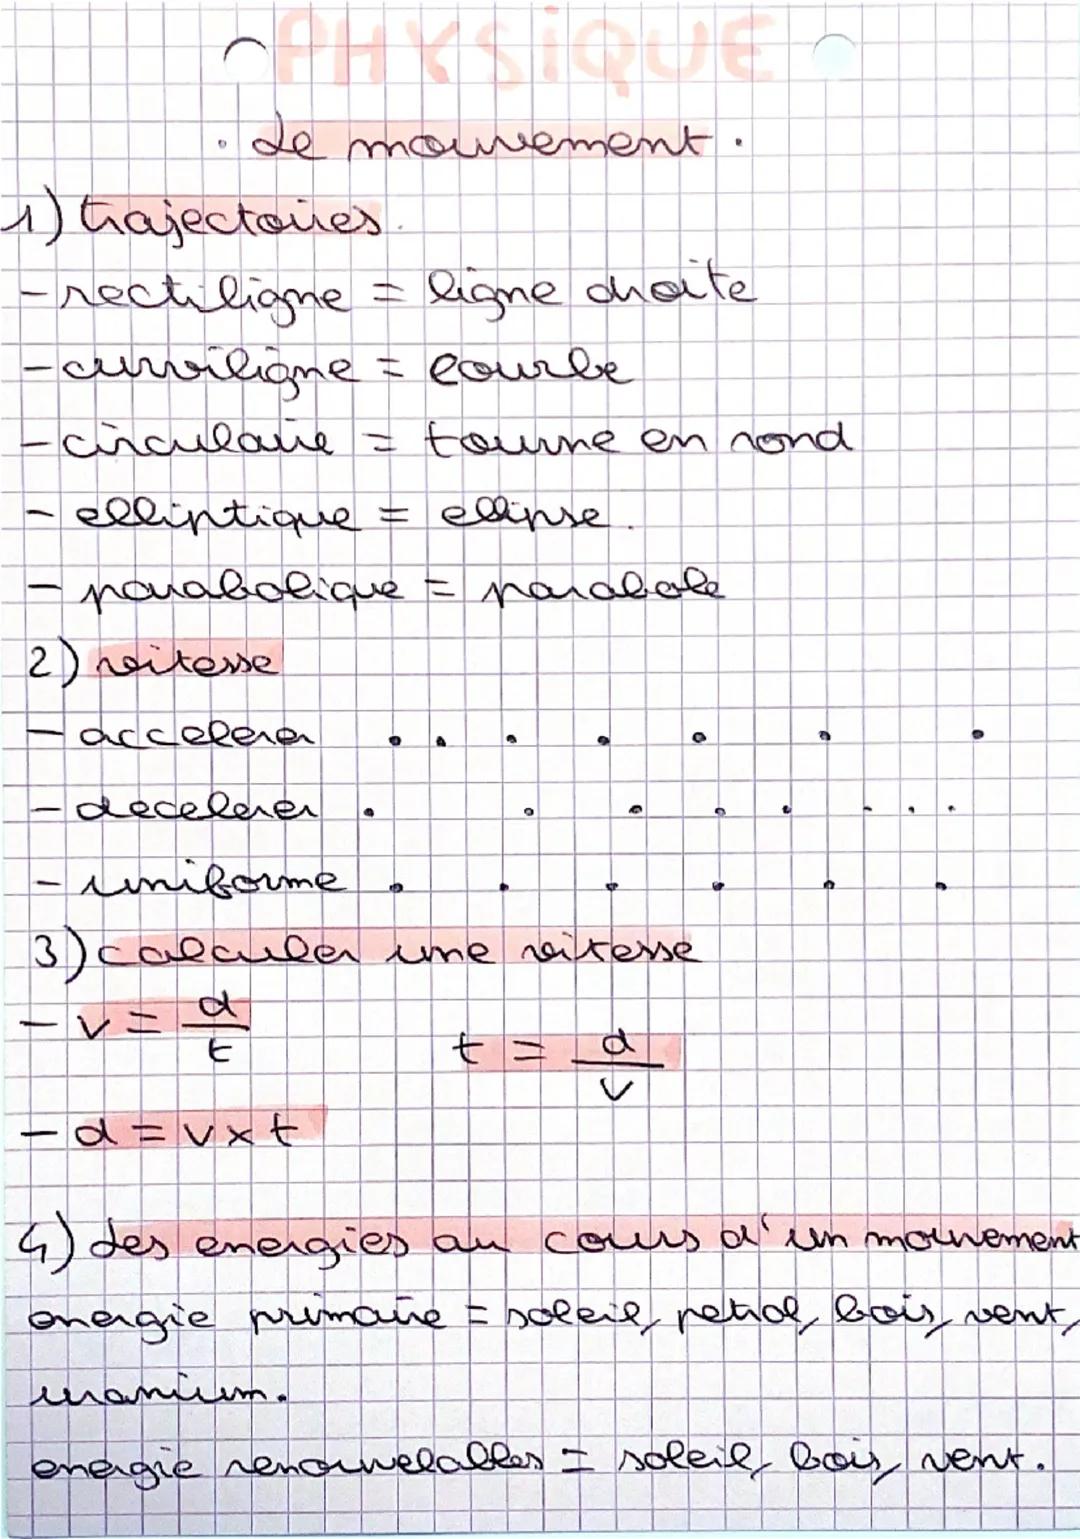 PHYSiQUE
. Le mouvement .
1) trajectoires.
- rectiligne = ligne droite
- curviligne = courbe
- circulaire = tourne en rond
- elliptique = ellipse.
- parabolique = parabole
2) vitesse
- accelerer
- decelerer
- uniforme
3) calculer une vitesse
- v = d/t
t = d/v
- d = v x t
4) des energies au cours d'un mouvement
energie primaire = soleil, petrol, bois, vent,
uranium.
energie renouvelables = soleil, bois, vent.